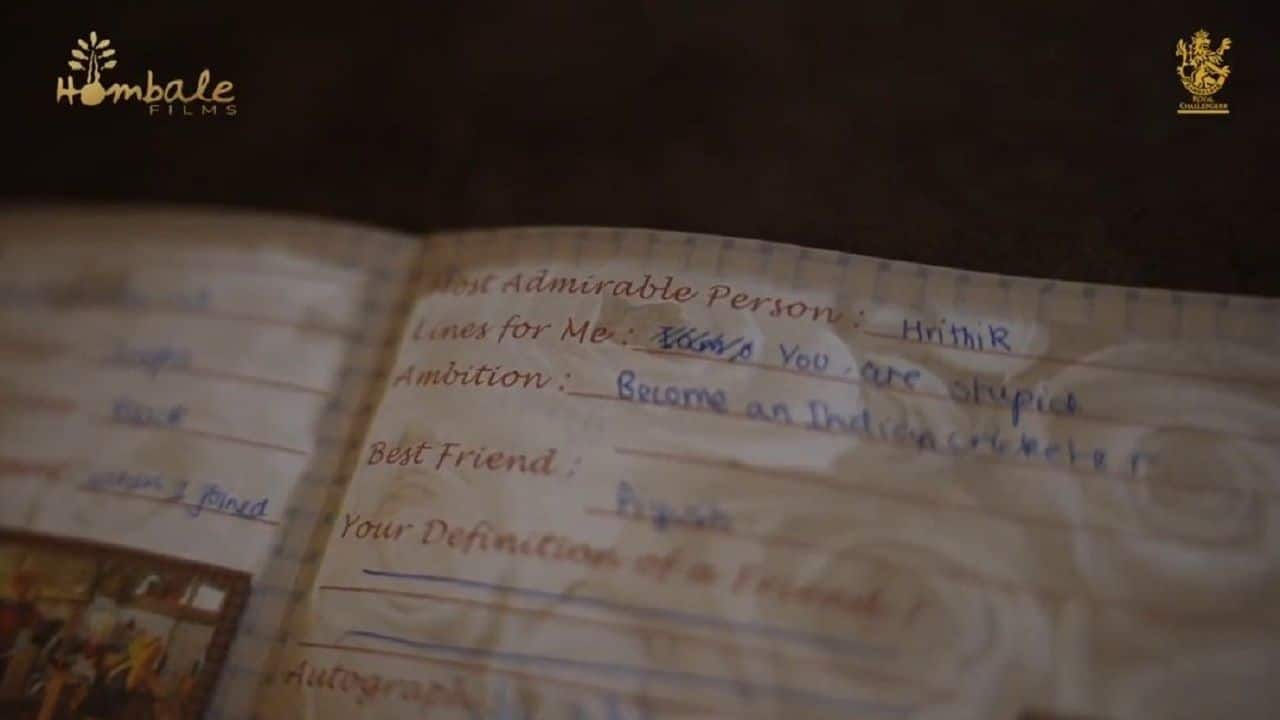 Hombale
FILMS
ROYAL
CHALLENGERS
joined
Most Admirable Person : Hrithik
Lines for Me : You are stupid
Ambition : Become an Indian cricketer
Best Friend :
Your Definition of a Friend :
Autograph